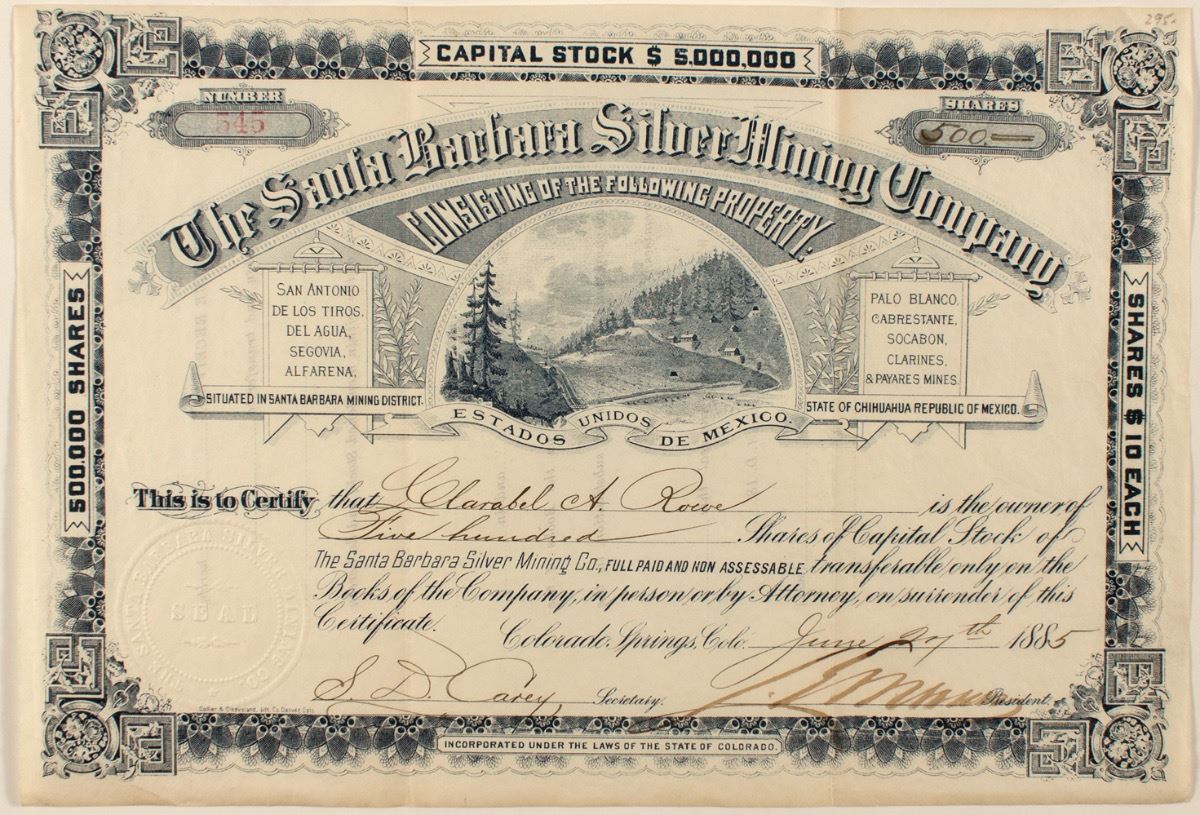 295.
CAPITAL STOCK $ 5.000,000
NUMBER
545
SHARES
500.—
The Santa Barbara Silver Mining Company
CONSISTING OF THE FOLLOWING PROPERTY.
SAN ANTONIO
DE LOS TIROS.
DEL AGUA,
SEGOVIA,
ALFARENA,
SITUATED IN SANTA BARBARA MINING DISTRICT.
PALO BLANCO,
CABRESTANTE,
SOCABON,
CLARINES,
& PAYARES MINES.
STATE OF CHIHUAHUA REPUBLIC OF MEXICO.
ESTADOS UNIDOS DE MEXICO.
500.000 SHARES
SHARES $ 10 EACH
This is to Certify that Clarabel A. Rowe is the owner of
Five hundred Shares of Capital Stock of
The Santa Barbara Silver Mining Co., FULL PAID AND NON ASSESSABLE transferable only on the
Books of the Company, in person or by Attorney, on surrender of this
Certificate. Colorado Springs, Colo. June 27th 1885
SEAL
S. D. Carey Secretary. President.
INCORPORATED UNDER THE LAWS OF THE STATE OF COLORADO.